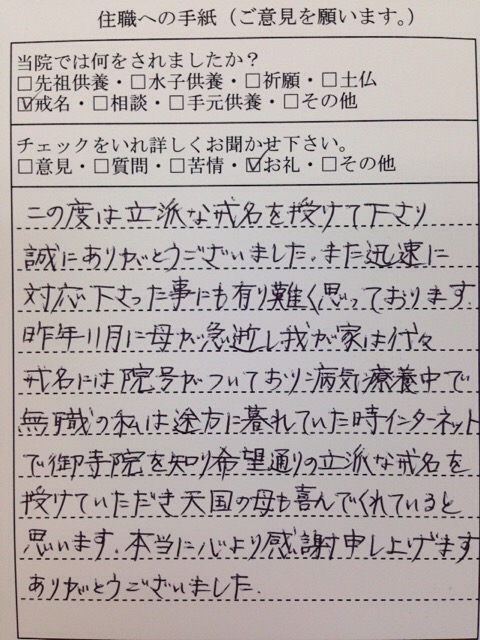 住職への手紙（ご意見を願います。）
当院では何をされましたか？
□先祖供養・□水子供養・□祈願・□土仏
☑戒名・□相談・□手元供養・□その他
チェックをいれ詳しくお聞かせ下さい。
□意見・□質問・□苦情・☑お礼・□その他
この度は立派な戒名を授けて下さり
誠にありがとうございました。また迅速に
対応下さった事にも有り難く思っております。
昨年11月に母が急逝し我が家は代々
戒名には院号がついており病気療養中で
無職の私は途方に暮れていた時インターネット
で御寺院を知り希望通りの立派な戒名を
授けていただき天国の母も喜んでくれていると
思います。本当に心より感謝申し上げます
ありがとうございました。